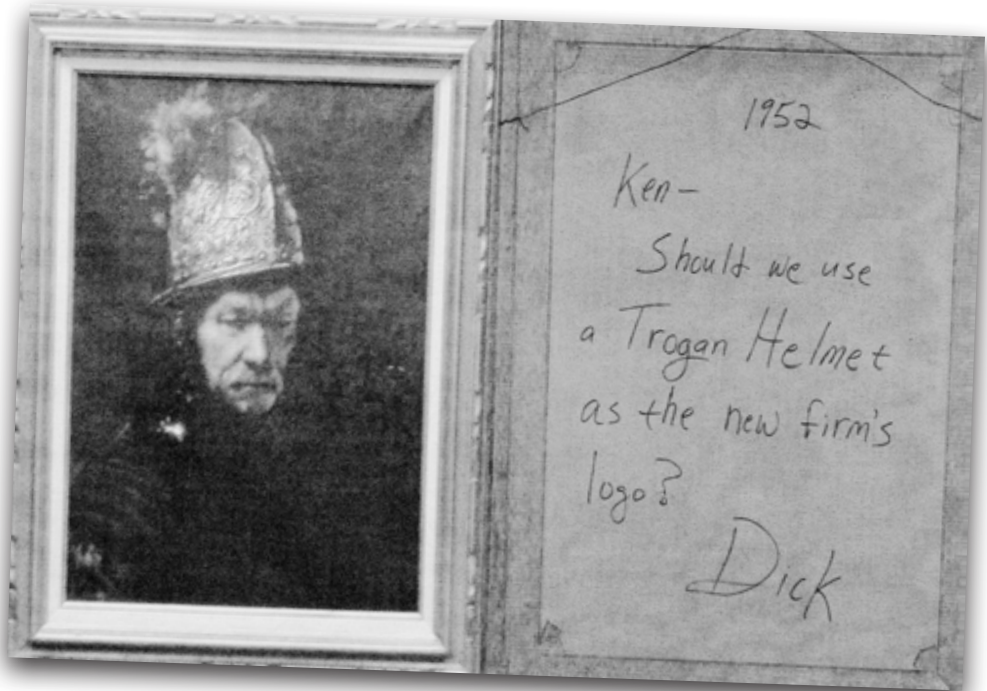 1952
Ken-
Should we use
a Trogan Helmet
as the new firm's
logo?
Dick